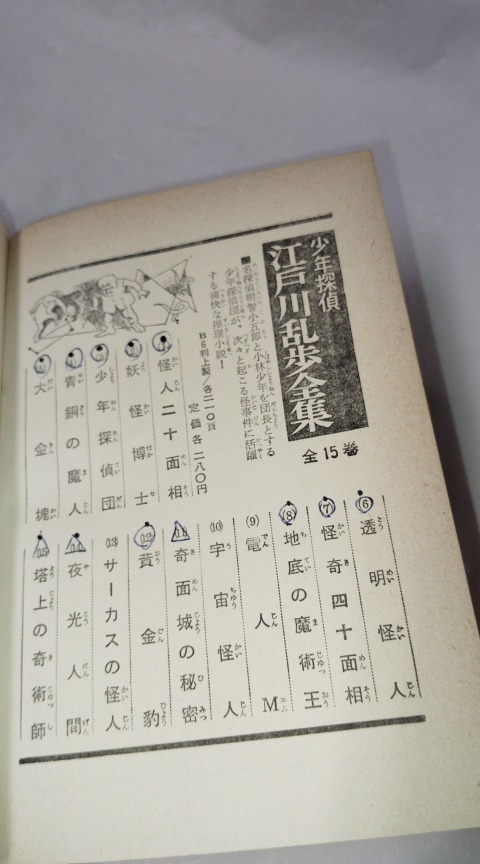 少年探偵
江戸川乱歩全集
全15巻
■名探偵明智小五郎と小林少年を団長とする
少年探偵団が、次々と起こる怪事件に活躍
する痛快な推理小説！
B6判上製/各二一〇頁
定価各 二八〇円
(1)怪人二十面相
(2)妖怪博士
(3)少年探偵団
(4)青銅の魔人
(5)大金塊
(6)透明怪人
(7)怪奇四十面相
(8)地底の魔術王
(9)電人M
(10)宇宙怪人
(11)奇面城の秘密
(12)黄金豹
(13)サーカスの怪人
(14)夜光人間
(15)塔上の奇術師